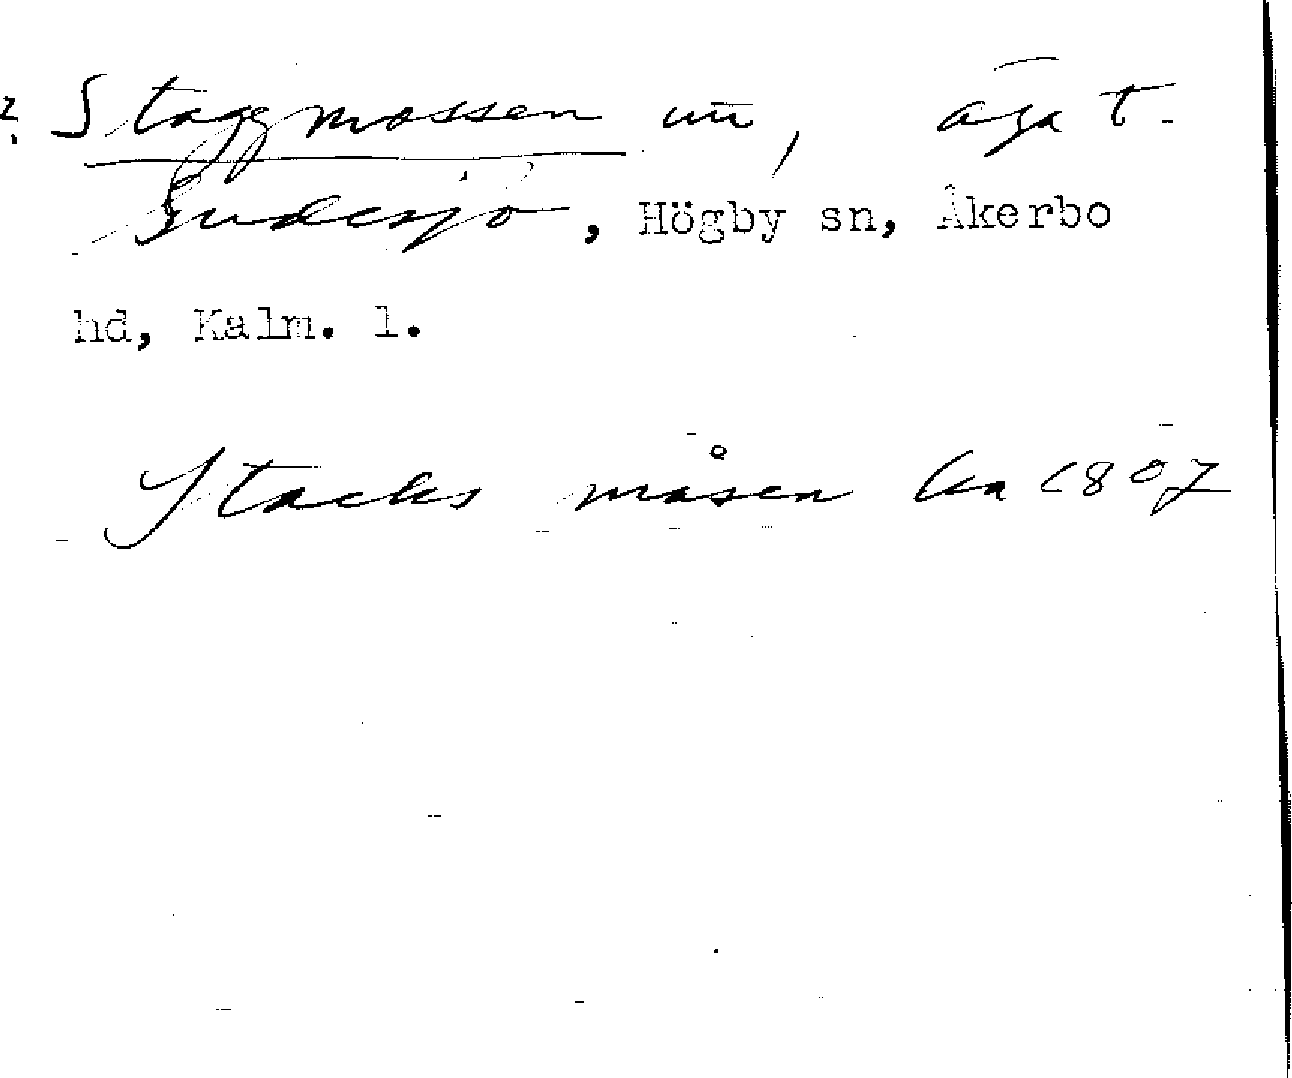 ? Staggmossen un, äga t.
Gudesjö, Högby sn, Åkerbo
hd, Kalm. l.
Stacks måsen Ka 1807